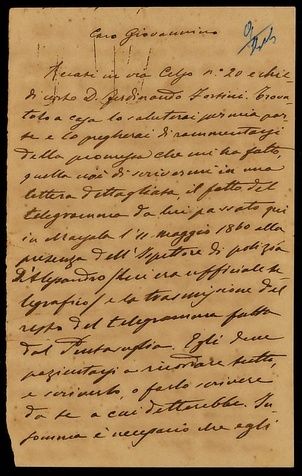 Caro Giovannino
Recati in via Celso n.° 20 e chie-
di di certo D. Ferdinando Forsini. Trova-
tolo a casa lo saluterai per mia par-
te e lo pregherai di rammentarsi
della promessa che mi ha fatto,
quella cioè di scrivermi in una
lettera dettagliata, il fatto del
telegramma da lui passato qui
in Marsala l'11 maggio 1860 alla
presenza dell'Ispettore di polizia
D'Alessandro (lui era ufficiale te-
legrafico) e la trasmissione del
resto del telegramma fatta
dal Pentasuglia. Egli deve
pazientarsi a ricordare tutto,
e scriverlo, o farlo scrivere
da te a cui detterebbe. In-
somma è necessario che egli